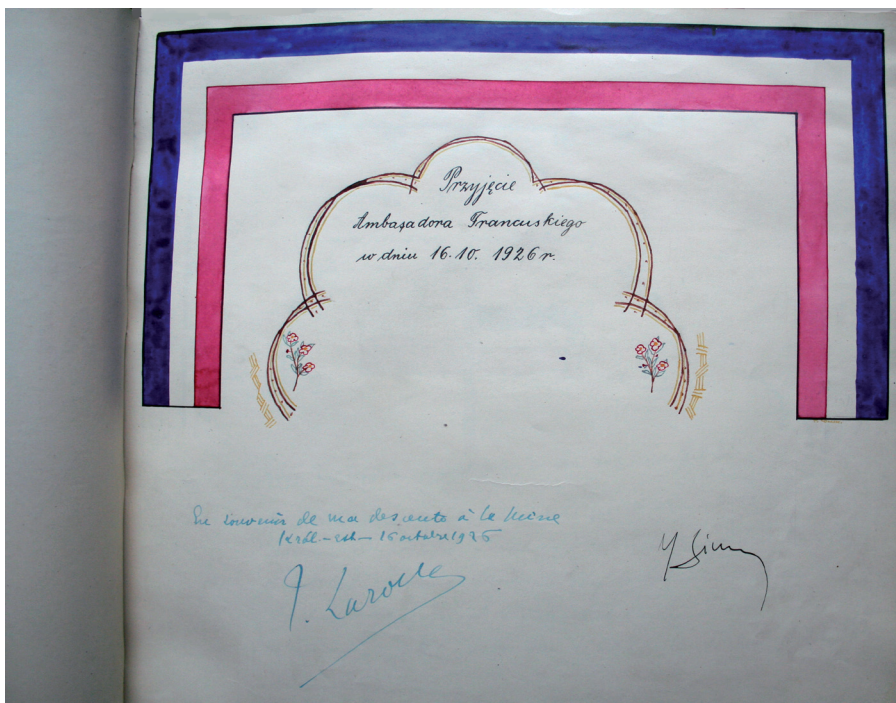 Przyjęcie
Ambasadora Francuskiego
w dniu 16.10. 1926 r.
En souvenir de ma descente à la Mine
16 octobre 1926
J. Laroche